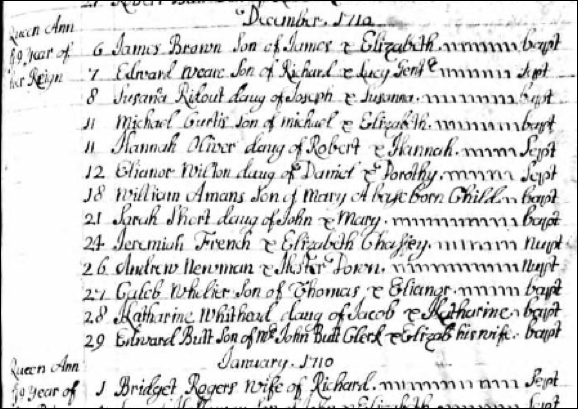 December. 1710
Queen Ann
9 Year of
her Reign
6 James Brown Son of James & Elizabeth. bapt
7 Edward Weare Son of Richard & Lucy Gent Sept
8 Susana Ridout daug of Joseph & Susanna. bapt
11 Michael Curtis Son of michael & Elizabeth. bapt
11 Hannah Oliver daug of Robert & Hannah. Sept
12 Elianor Wilton daug of Daniel & Dorothy. Sept
18 William Amans Son of Mary A base born Child bapt
21 Sarah Short daug of John & Mary. bapt
24 Jeremiah French & Elizabeth Chaffey. Nupt
26 Andrew Newman & Hester Down. Nupt
27 Caleb Whelier Son of Thomas & Elianor. bapt
28 Katharine Whithead daug of Jacob & Katharine bapt
29 Edward Butt Son of Mr John Butt Clerk & Elizab his wife. bapt
January. 1710
Queen Ann
9 Year of
1 Bridget Rogers Wife of Richard. Sept